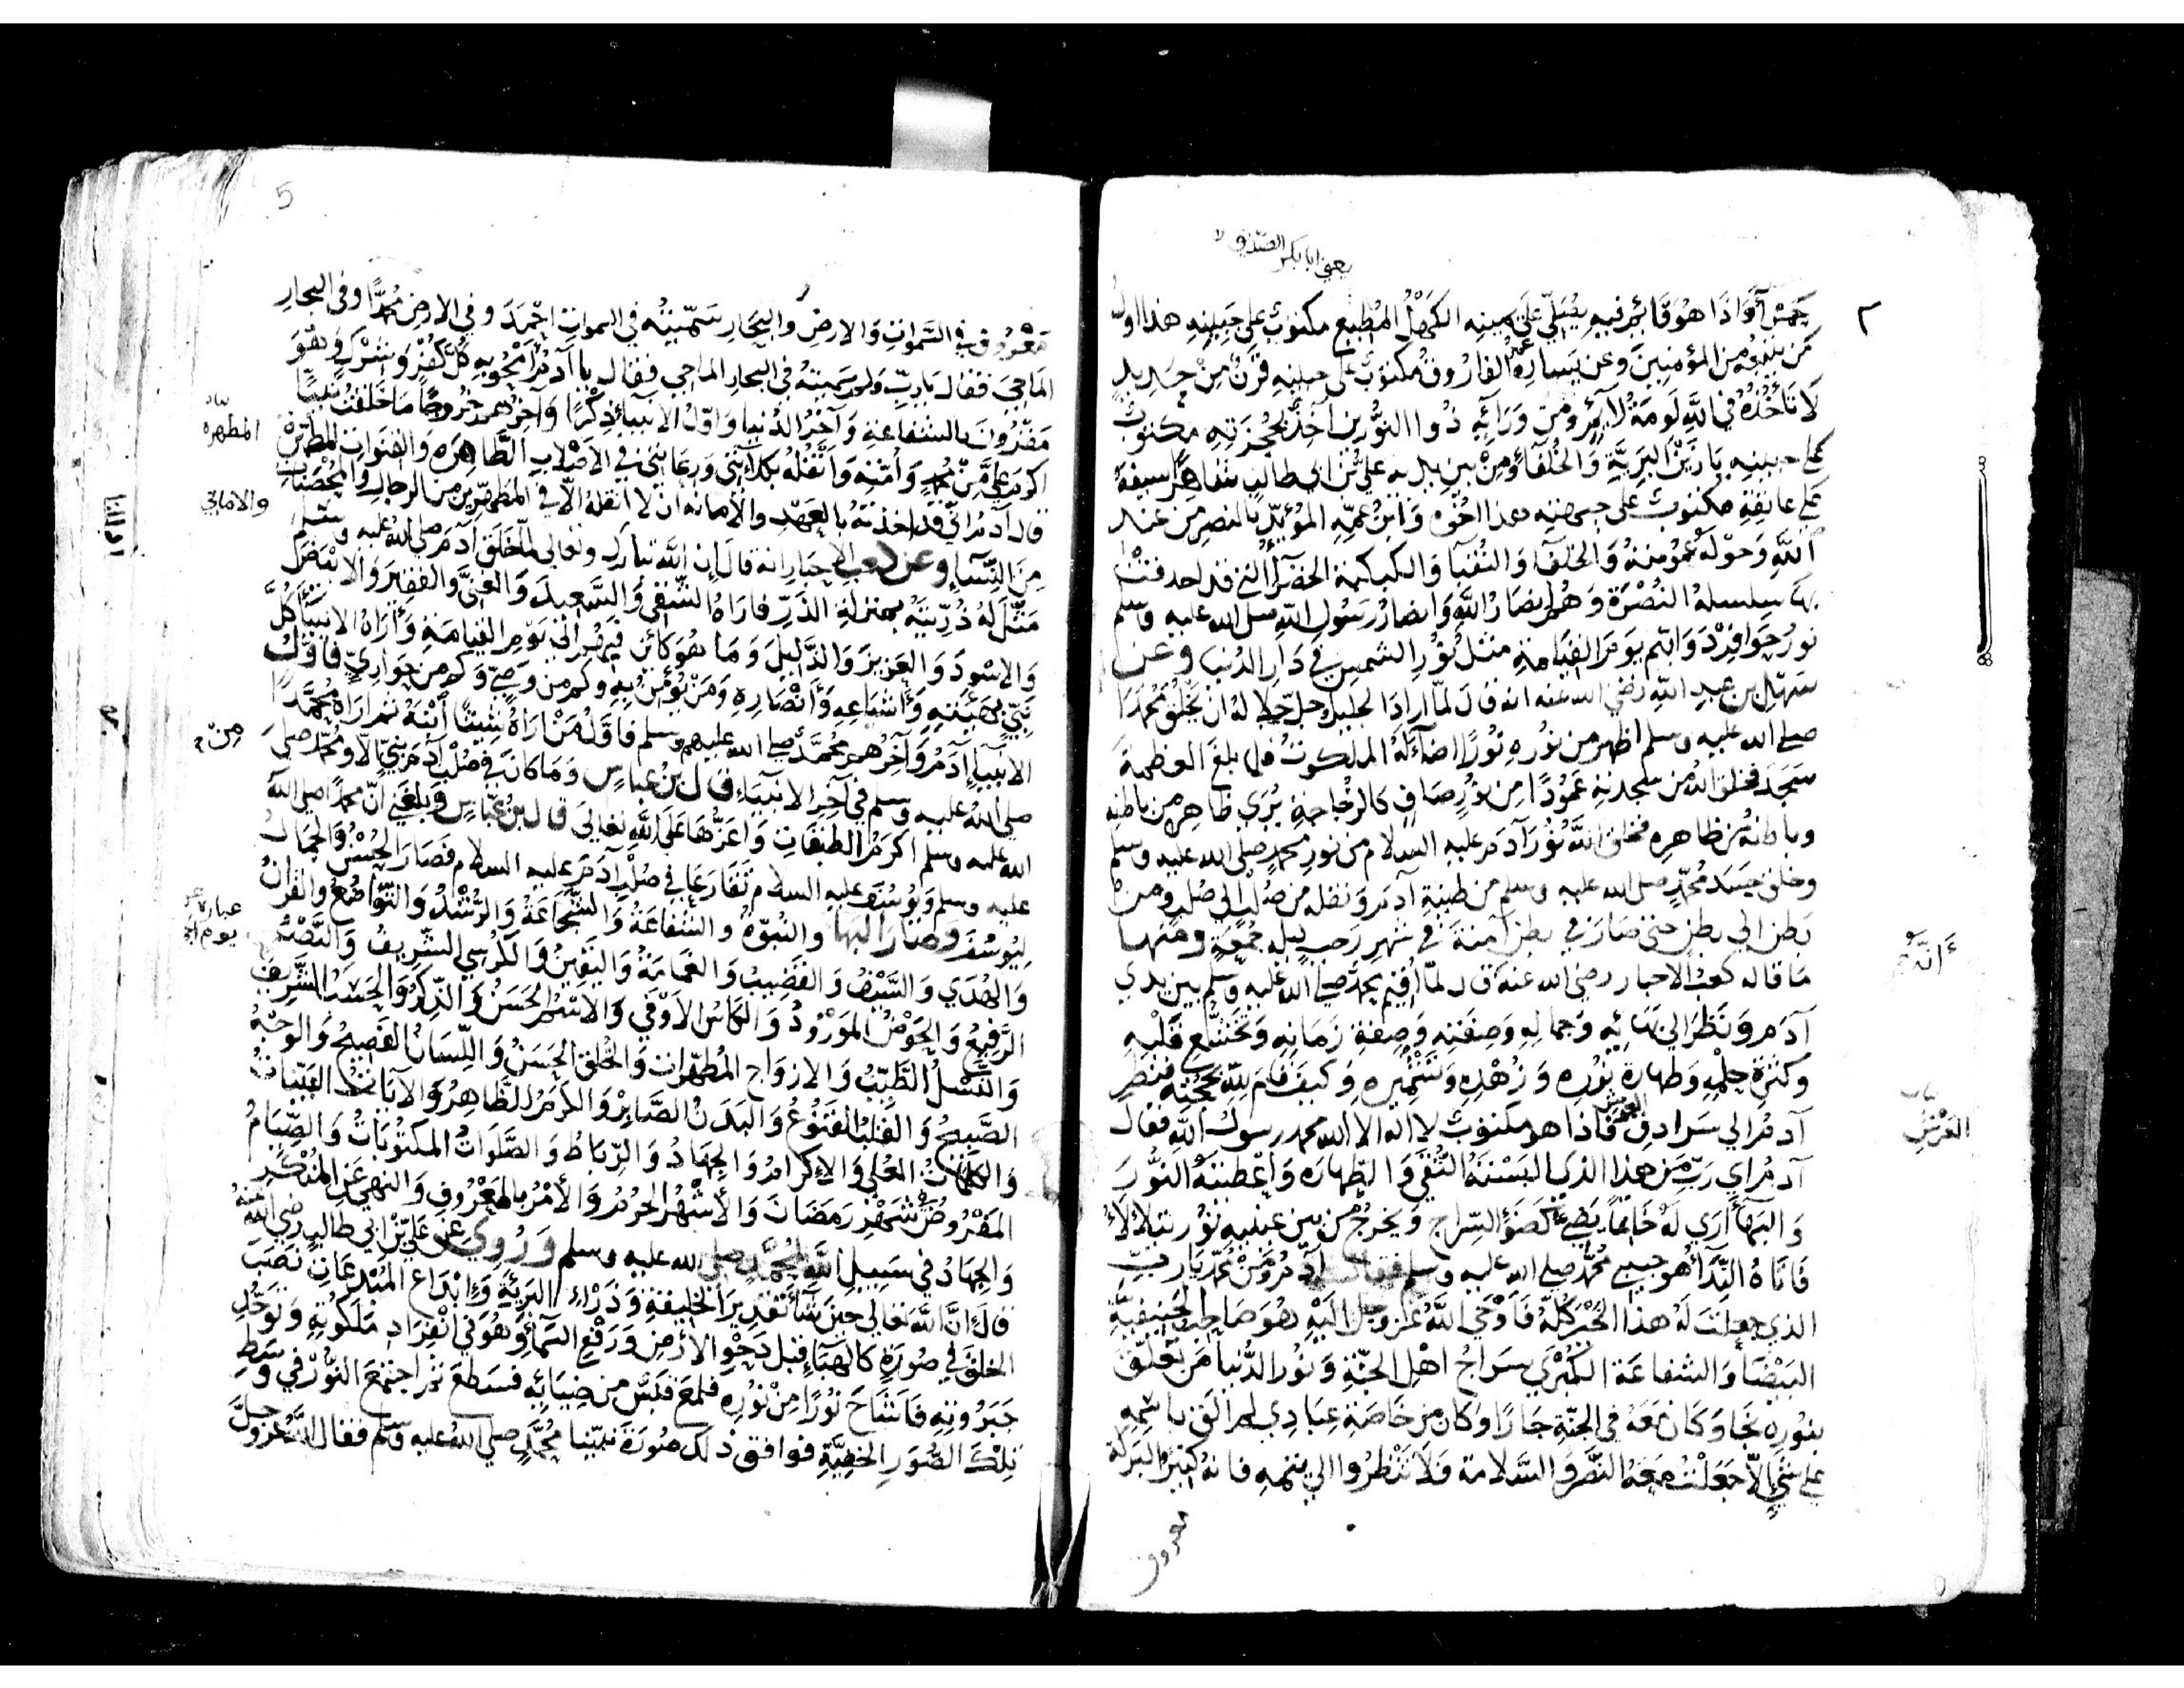 يعني ابا بكر الصديق
حمراء واذا هو قائم فيه يصلي على يمينه الكهل المطيع مكتوب على جبينه هذا اول
من يتبعه من المؤمنين وعن يساره عمر الفاروق مكتوب على جبينه قرن من حديد
لا تأخذه في الله لومة لائم ومن ورائه ذوا النورين آخذ بحجزته مكتوب
على جبينه بار من البررة والخلفاء ومن بين يديه علي بن ابي طالب شاهرا سيفه
على عاتقه مكتوب على جبهته هذا اخوه وابن عمه المؤيد بالنصر من عند
الله وحوله عمومته والخلفاء والنقباء والكبكبة الخضراء التي قد احدقت
بها سلسلة النصرة وهم انصار الله وانصار رسول الله صلى الله عليه وسلم
نور حوافر دوابهم يوم القيامة مثل نور الشمس في دار الدنيا وعن
سهل بن عبد الله رضي الله عنه انه قال لما اراد الجليل جل جلاله ان يخلق محمدا
صلى الله عليه وسلم اظهر من نوره نورا اضاء له الملكوت فلما بلغ العظمة
سجد فخلق الله من سجدته عمودا من نور صاف كالزجاجة يرى ظاهره من باطنه
وباطنه من ظاهره فخلق الله نور آدم عليه السلام من نور محمد صلى الله عليه وسلم
وخلق جسد محمد صلى الله عليه وسلم من طينة آدم ونقله من صلب الى صلب ومن
بطن الى بطن حتى صار في بطن آمنة في شهر رجب ليلة جمعة ومنها
ما قاله كعب الاحبار رضي الله عنه قال لما اقيم محمد صلى الله عليه وسلم بين يدي
آدم ونظر الى بهائه وجماله وصفته وصفة زمانه وتخشع قلبه
وكثرة حلمه وطهارة نوره وزهده وتشميره وكيف قام لله بحجته فنظر
آدم الى سرادق العرش فاذا هو مكتوب لا اله الا الله محمد رسول الله فقال
آدم اي رب من هذا الذي البسته التقى والطهارة واعطيته النور
والبهاء ارى له خاتما يضيء كضوء السراج ويخرج من بين عينيه نور يتلألأ
فاتاه النداء هو حبيبي محمد صلى الله عليه وسلم فقال آدم ومن محمد يا رب
الذي جعلت له هذا الخير كله فأوحى الله عز وجل اليه هو صاحب الحنيفية
البيضاء والشفاعة الكبرى سراج اهل الجنة ونور الدنيا من تعلق
بنوره نجا وكان معه في الجنة جارا وكان من خاصة عبادي لم الق باسمه
على شيء الا جعلت معه النصر والسلامة فلا تنظروا الى يتمه فانه كثير البركة
معروف
العرش
5
معروف في السموات والارض والبحار سميته في السموات احمد وفي الارض محمدا وفي البحار
الماحي فقال يا رب ولم سميته في البحار الماحي فقال يا آدم امحو به كل كفر وشرك وهو
مقرون بالشفاعة وآخر الدنيا واول الانبياء ذكرا وآخرهم خروجا ما خلقت نبيا
اكرم علي من محمد وامته وانقله بكلاءتي ورعايتي في الاصلاب الطاهرة والقنوات المطهرة
قال آدم اني قد اخذته بالعهد والامانة ان لا انقله الا في المطهرين من الرجال والمحصنات
من النساء وعن كعب الاحبار انه قال ان الله تبارك وتعالى لما خلق آدم صلى الله عليه وسلم
مثل له ذريته بمنزلة الذر فاراه الشقي والسعيد والغني والفقير والابيض
والاسود والعزيز والذليل وما هو كائن فيهم الى يوم القيامة واراه الانبياء كل
نبي بهيئته واشياعه وانصاره ومن يؤمن به وكم من وصي وكم من حواري فاول
الانبياء آدم وآخرهم محمد صلى الله عليهم وسلم فاول من اراه شيثا ابنه ثم اراه محمدا
صلى الله عليه وسلم في آخر الانبياء قال ابن عباس وما كان في صلب آدم نبي الا ومحمد صلى
الله عليه وسلم اكرم الطبقات واعزها على الله تعالى قال ابن عباس وبلغني ان محمدا صلى الله
عليه وسلم ويوسف عليه السلام تقارعا في صلب آدم عليه السلام فصار الحسن والجمال
ليوسف وصار البها والنبوة والشفاعة والشجاعة والرشد والتواضع والقران
والهدي والسيف والقضيب والعمامة واليقين والكرسي الشريف والنصر
الرفيع والحوض المورود والكاس الاوفى والاسم الحسن والذكر والحسب الشريف
والنسل الطيب والازواج المطهرات والخلق الحسن واللسان الفصيح والوجه
الصبيح والقلب القنوع والبدن الصابر والكرم الظاهر والآيات البينات
والكلمات العلى والاكرام والجهاد والرباط والصلوات المكتوبات والصيام
المفروض شهر رمضان والاشهر الحرم والامر بالمعروف والنهي عن المنكر
والجهاد في سبيل الله لمحمد صلى الله عليه وسلم وروي عن علي بن ابي طالب رضي الله عنه
قال ان الله تعالى حين شاء تقدير الخليقة وذراء البرية وابداع المبدعات نصب
الخلق في صورة كالهباء قبل دحو الارض ورفع السماء وهو في انفراد ملكوته وتوحد
جبروته فاشاح نورا من نوره فلمع قبس من ضيائه فسطع ثم اجتمع النور في وسط
تلك الصور الخفية فوافق ذلك صورة نبينا محمد صلى الله عليه وسلم فقال الله عز وجل
المطهرة
من
عبارة